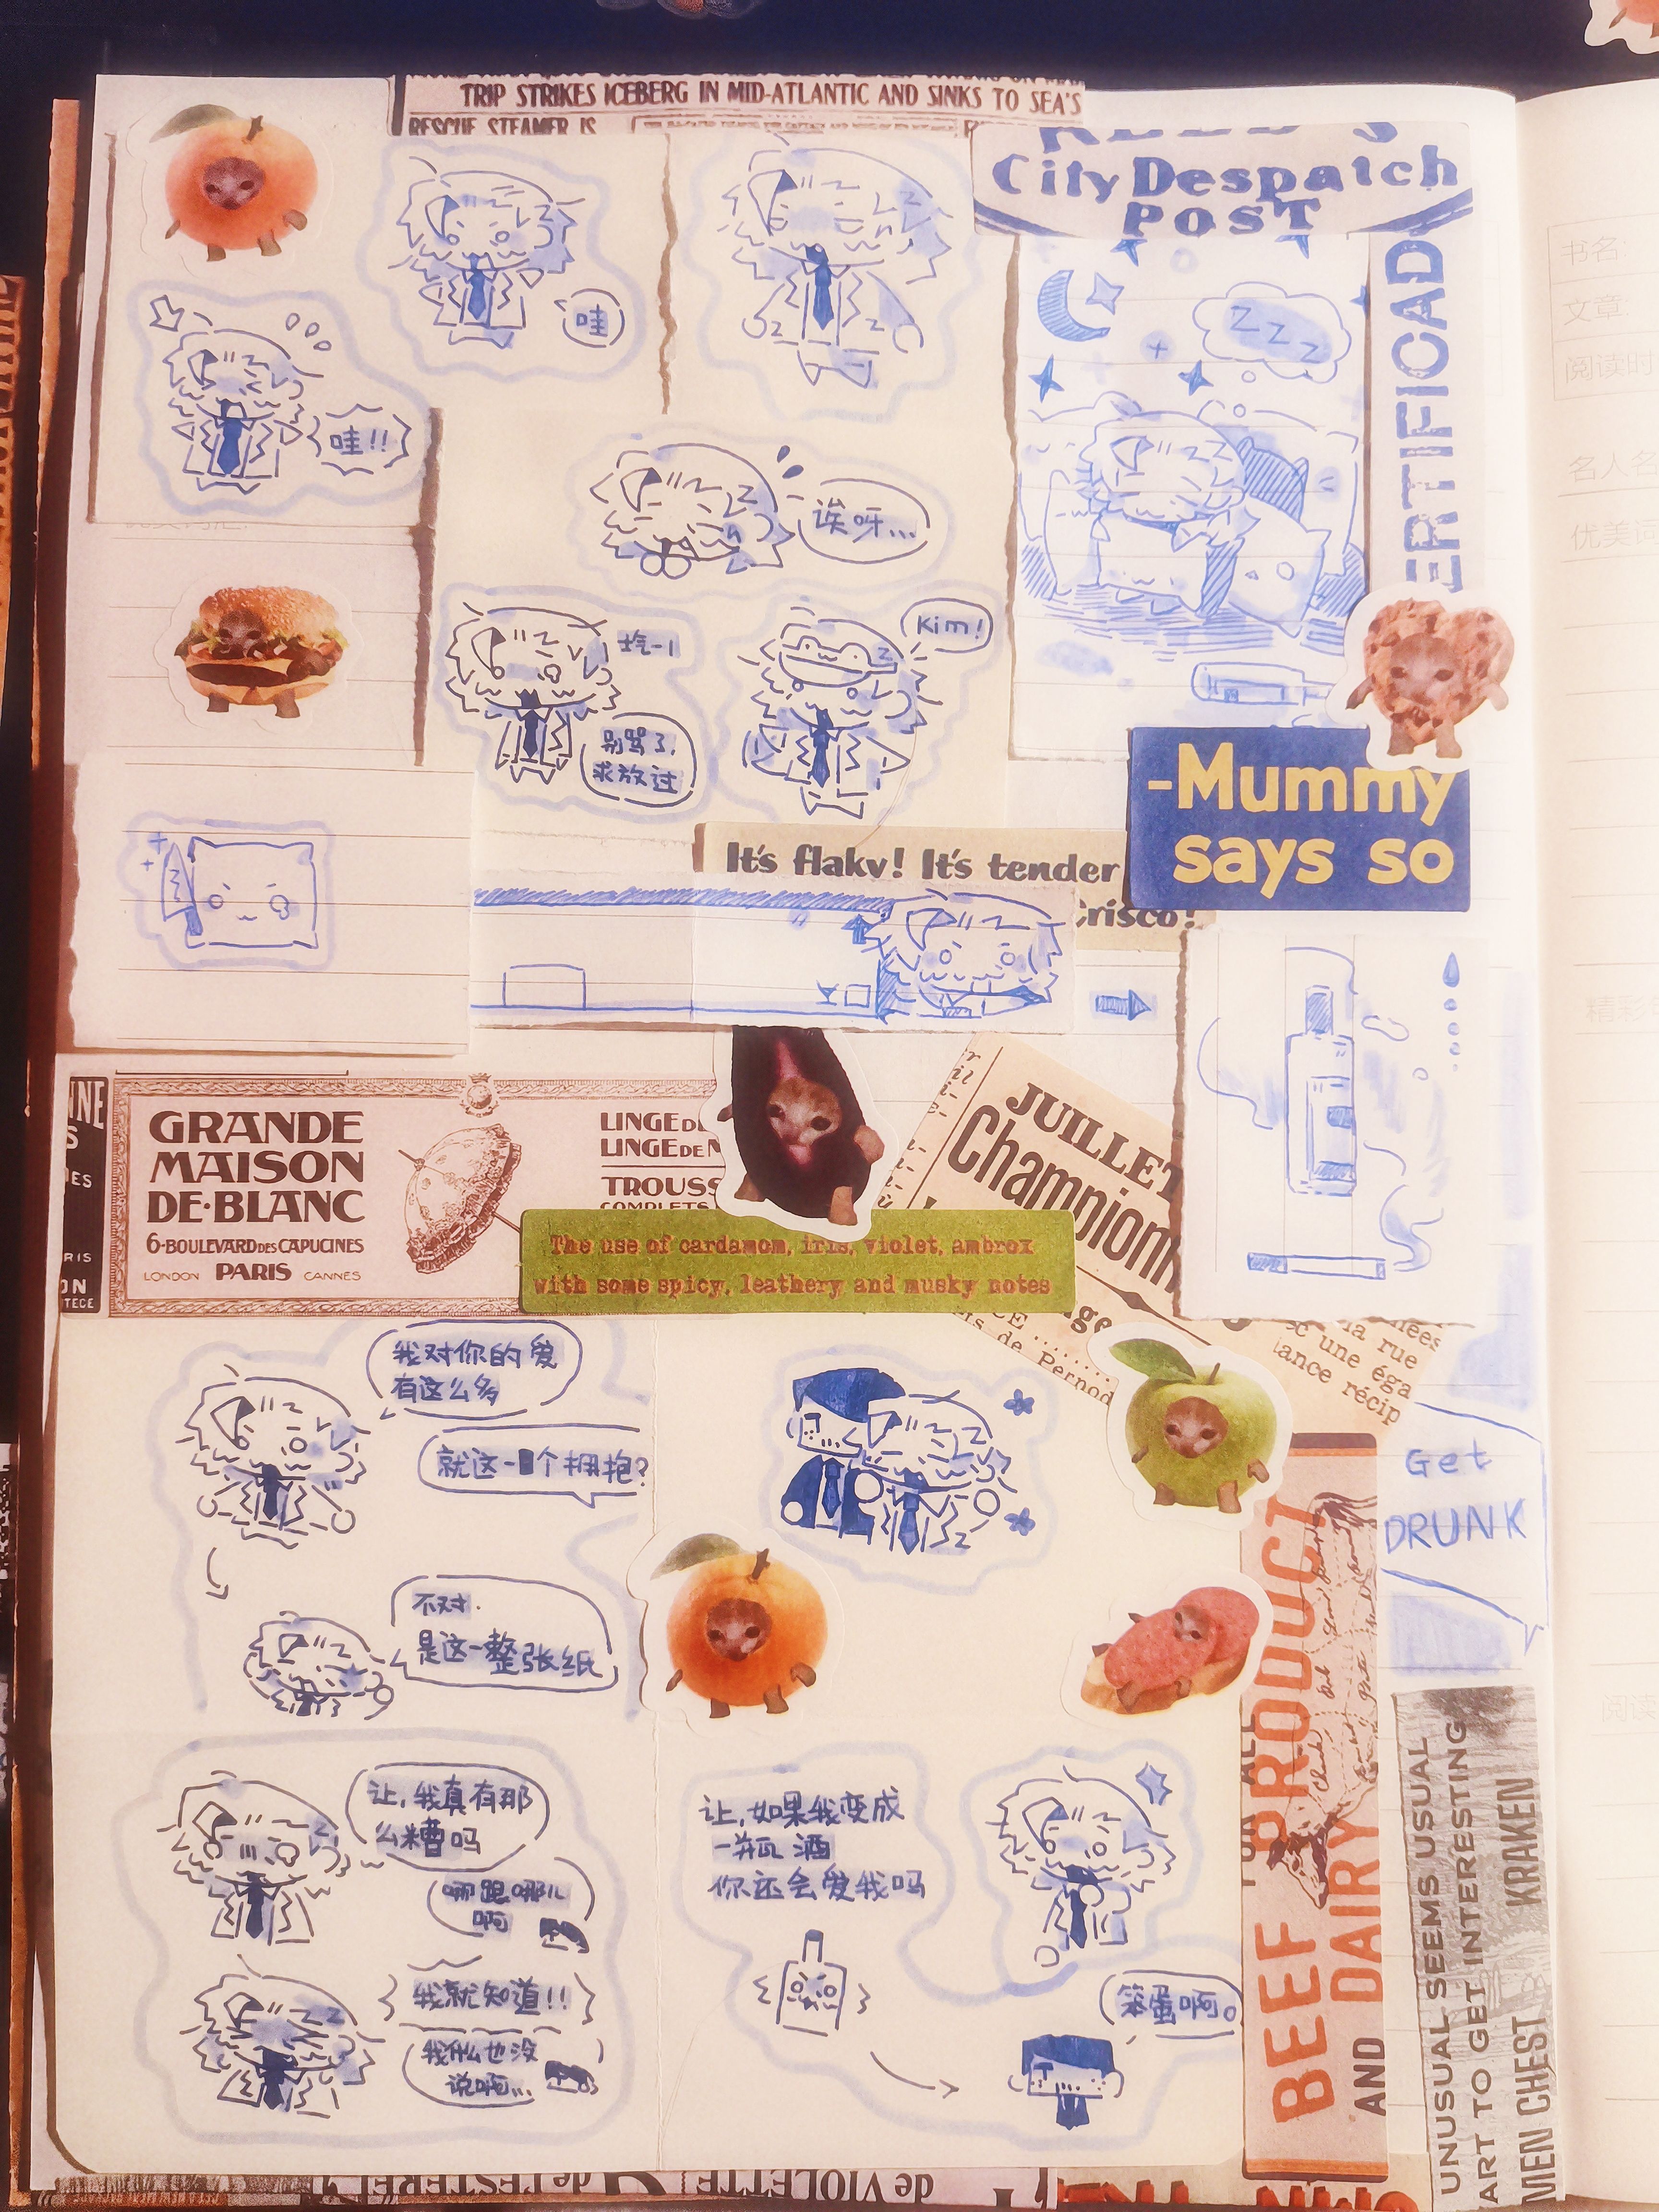 TRIP STRIKES ICEBERG IN MID-ATLANTIC AND SINKS TO SEA'S
RESCUE STEAMER IS
City Despatch
POST
哇
哇!!
Z Z Z
ERTIFICAD
诶呀...
Kim!
别骂了,
求放过
-Mummy
says so
It's flaky! It's tender
Crisco!
GRANDE
MAISON
DE·BLANC
6·BOULEVARD DES CAPUCINES
LONDON PARIS CANNES
LINGE DE
LINGE DE
TROUSS
COMPLETS
JUILLET
Championn
The use of cardamom, iris, violet, ambrox
with some spicy, leathery and musky notes
de Pernod
la rue
une éga
lance récip
我对你的爱
有这么多
就这一个拥抱?
不对.
是这一整张纸
Get
DRUNK
让,我真有那
么糟吗
哪跟哪儿
啊
我就知道!!
我什么也没
说啊...
让,如果我变成
一瓶酒
你还会爱我吗
笨蛋啊。
BEEF PRODUCT
AND DAIRY
UNUSUAL SEEMS USUAL
ART TO GET INTERESTING
MEN CHEST KRAKEN
de L'ESTEREL
de VIOLETTE
书名:
文章:
阅读时
名人名
优美词
精彩
阅读